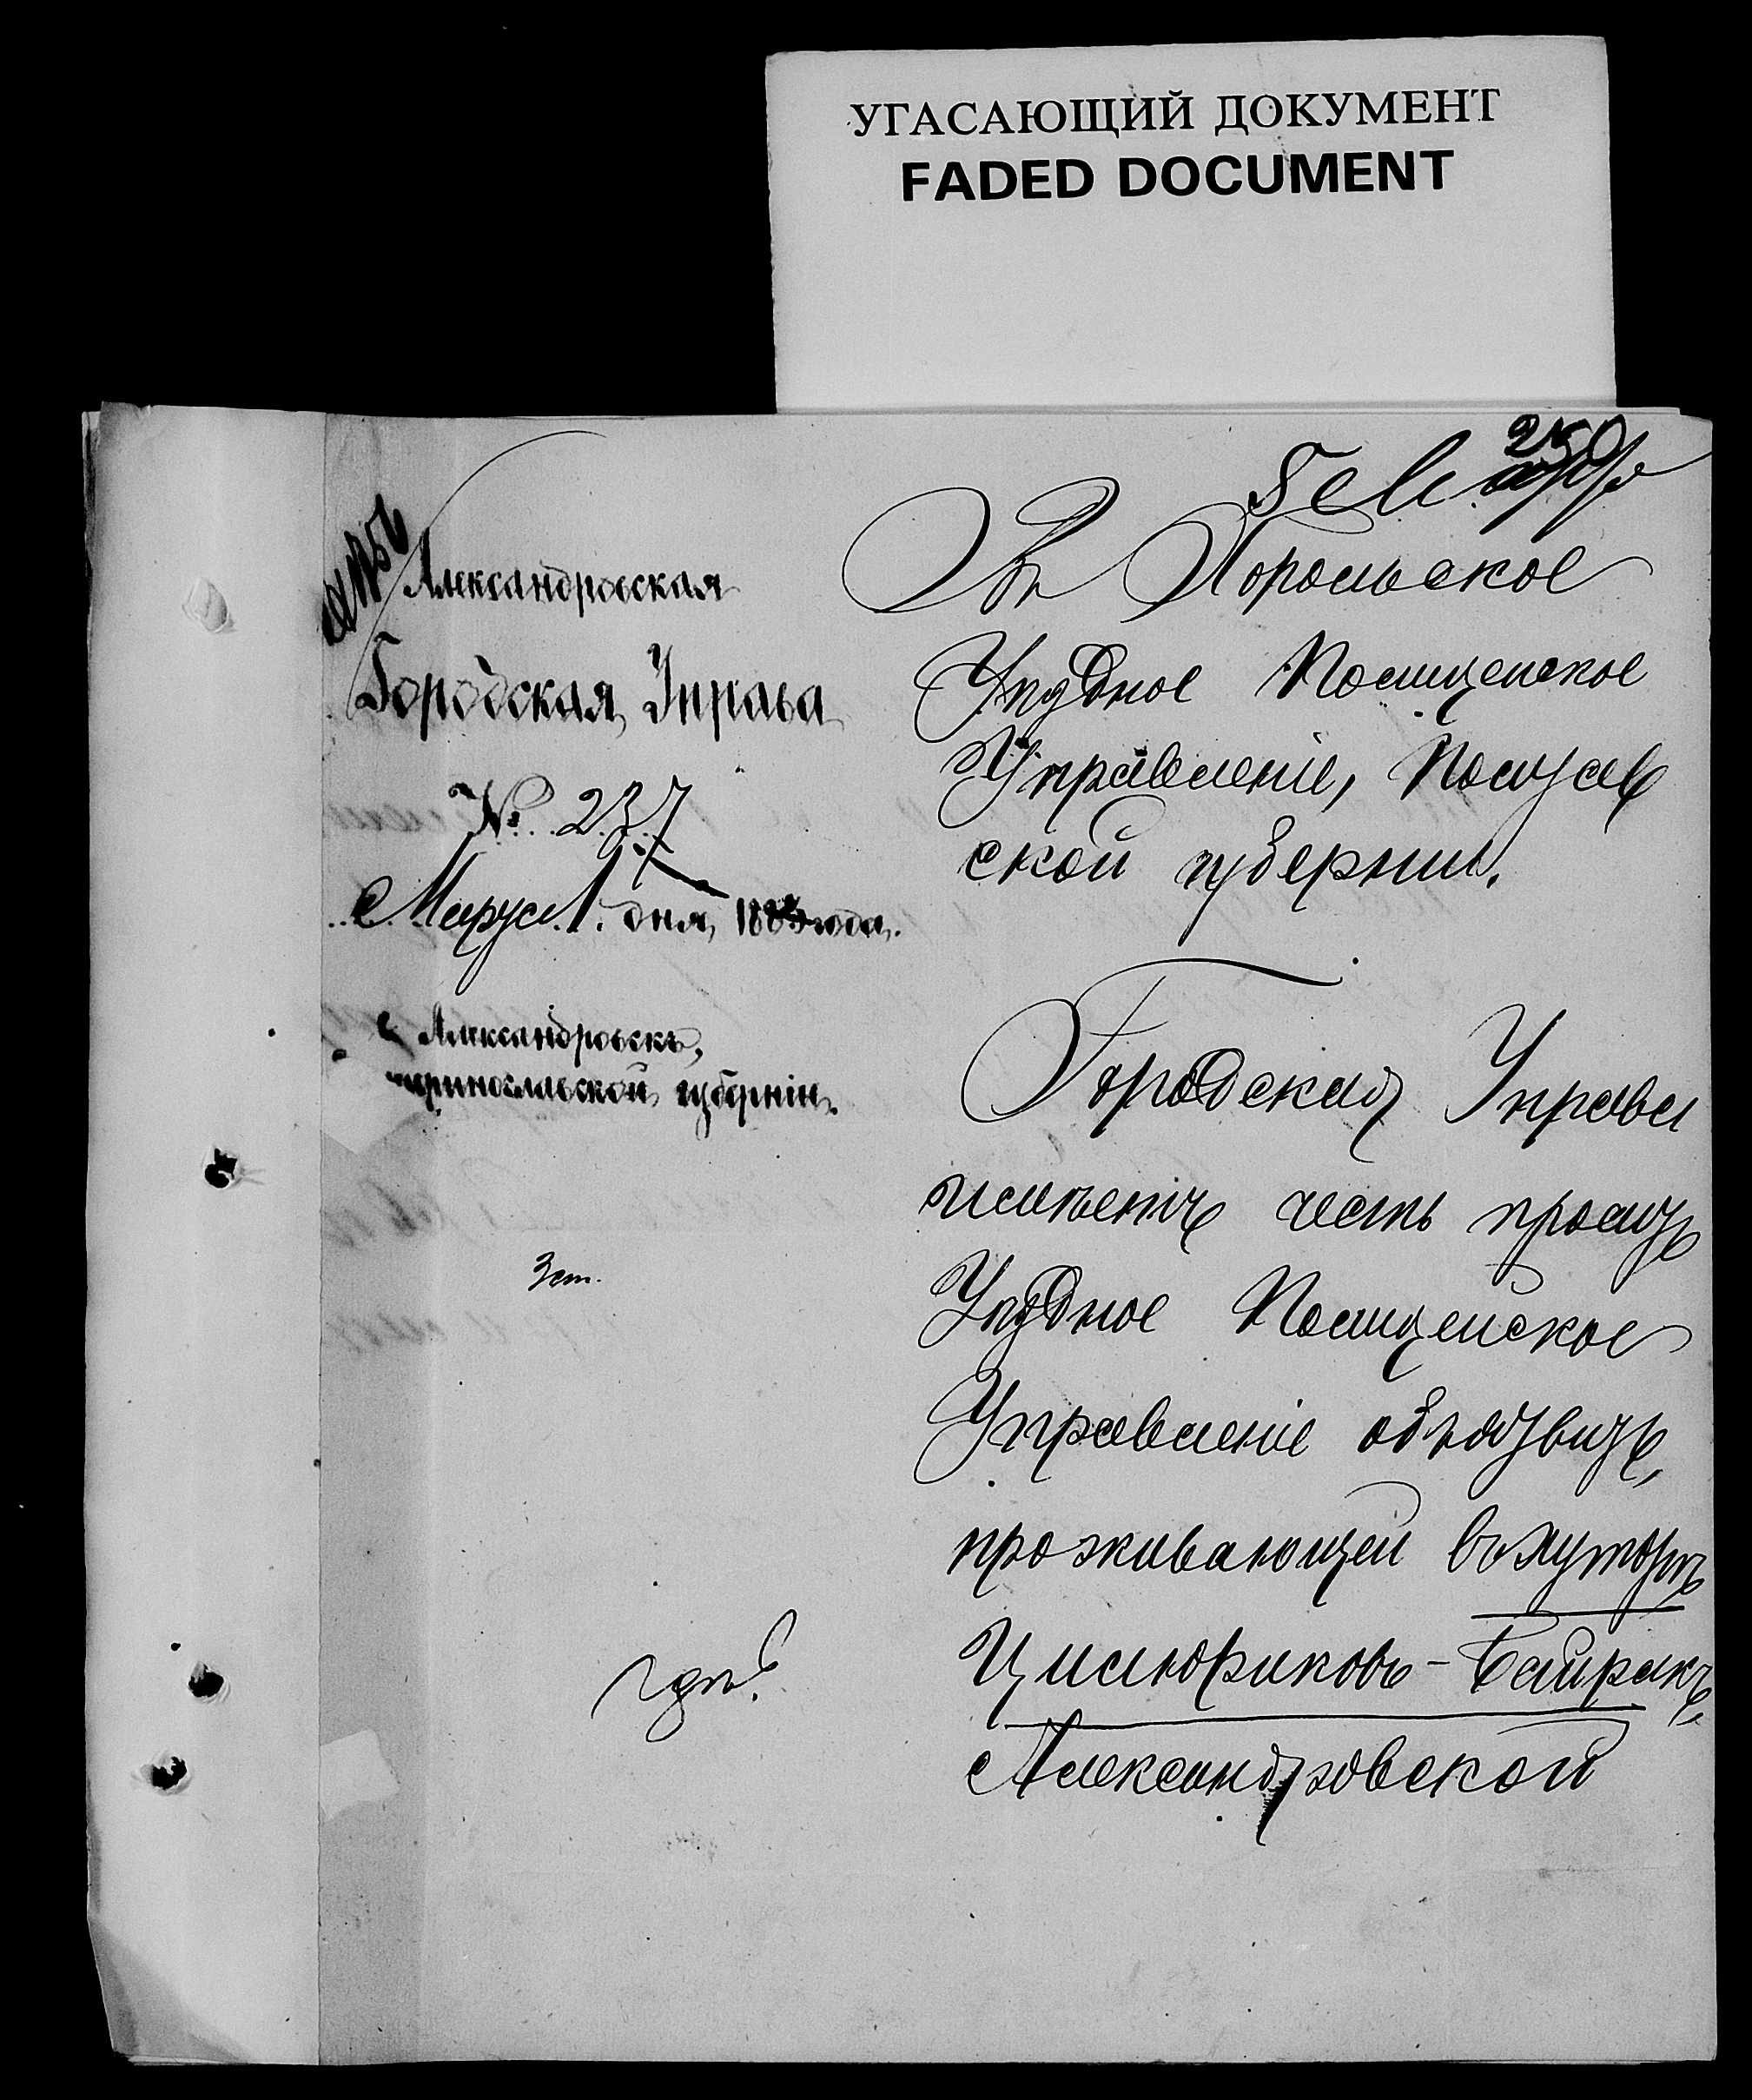 УГАСАЮЩИЙ ДОКУМЕНТ
FADED DOCUMENT
250
Александровская
Городская Управа
№ 237
Марта 1 дня 188 года.
Александровскъ,
губерніи.
3 ст.
Въ Хорольское
Уѣздное Полицейское
Управленіе, Полтав
ской губерніи.
Городская Управа
имѣетъ честь просить
Уѣздное Полицейское
Управленіе объявить,
проживающей въ хуторѣ
Цилюриковъ-Байракъ,
Александровской
гдѣ?